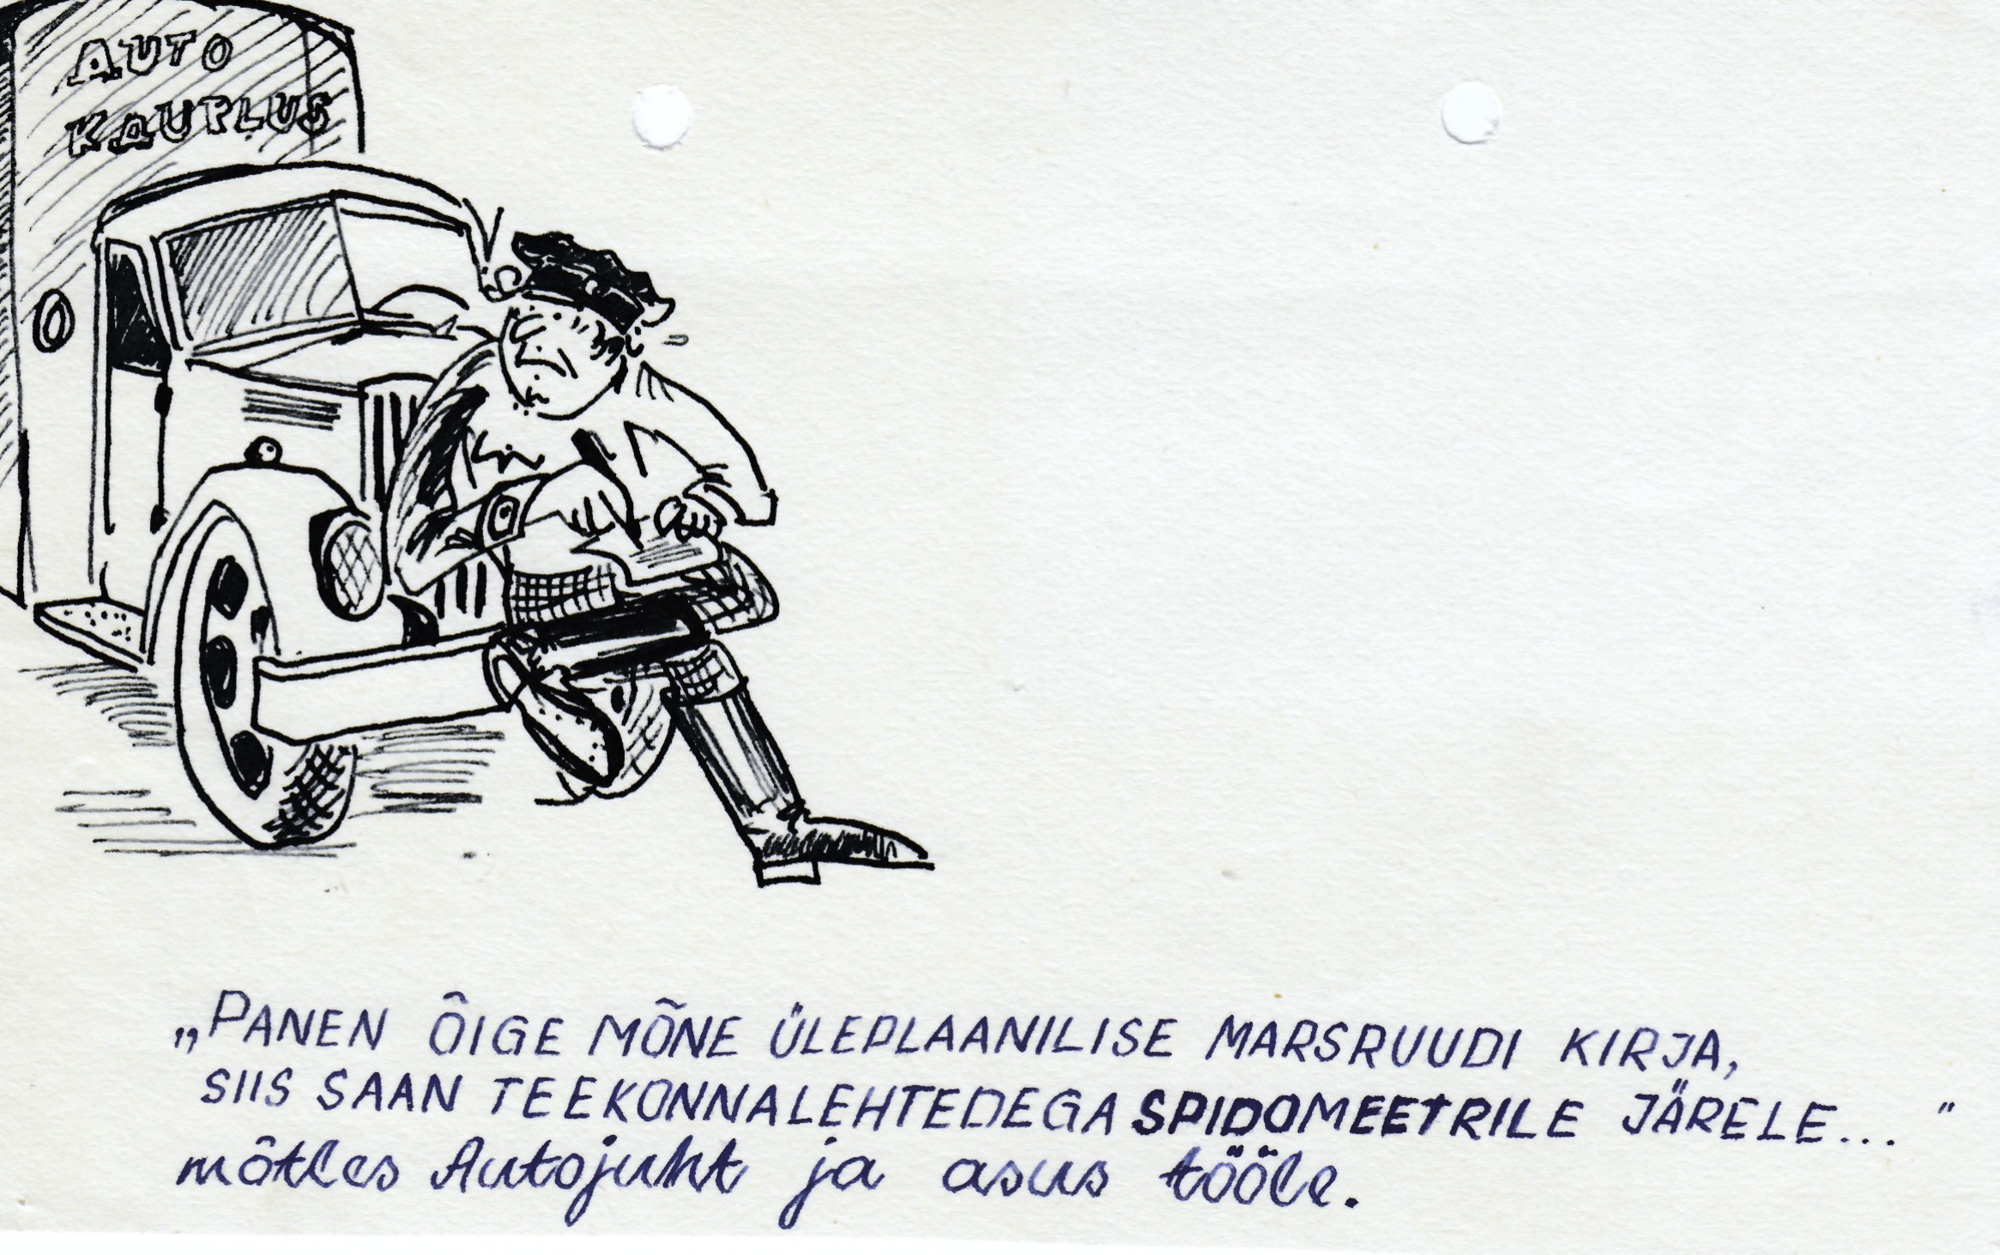 AUTO
KAUPLUS
„PANEN ÕIGE MÕNE ÜLEPLAANILISE MARSRUUDI KIRJA,
SIIS SAAN TEEKONNALEHTEDEGA SPIDOMEETRILE JÄRELE..."
mõtles Autojuht ja asus tööle.